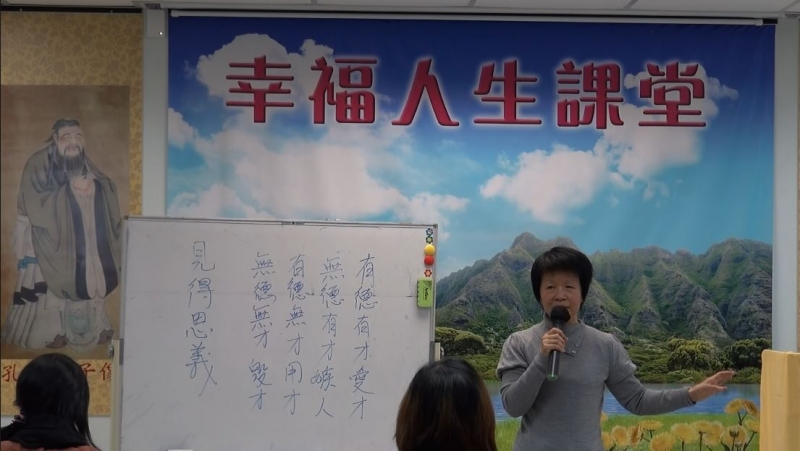 幸福人生課堂
有德有才愛才
無德有才嫉人
有德無才用才
無德無才毀才
見得思義
孔子像